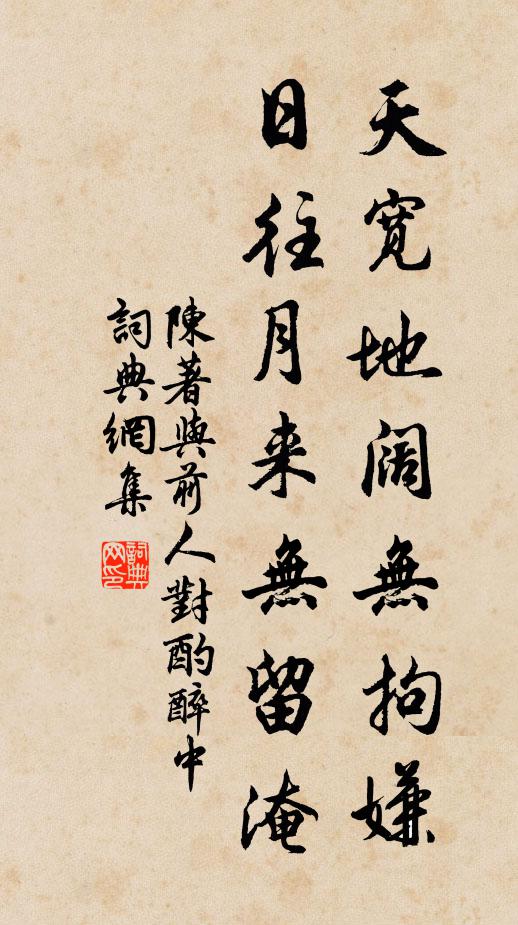 天寬地闊無拘嫌
日往月来無留淹
陳著與前人對酌醉中
詞典網集
詞典网印